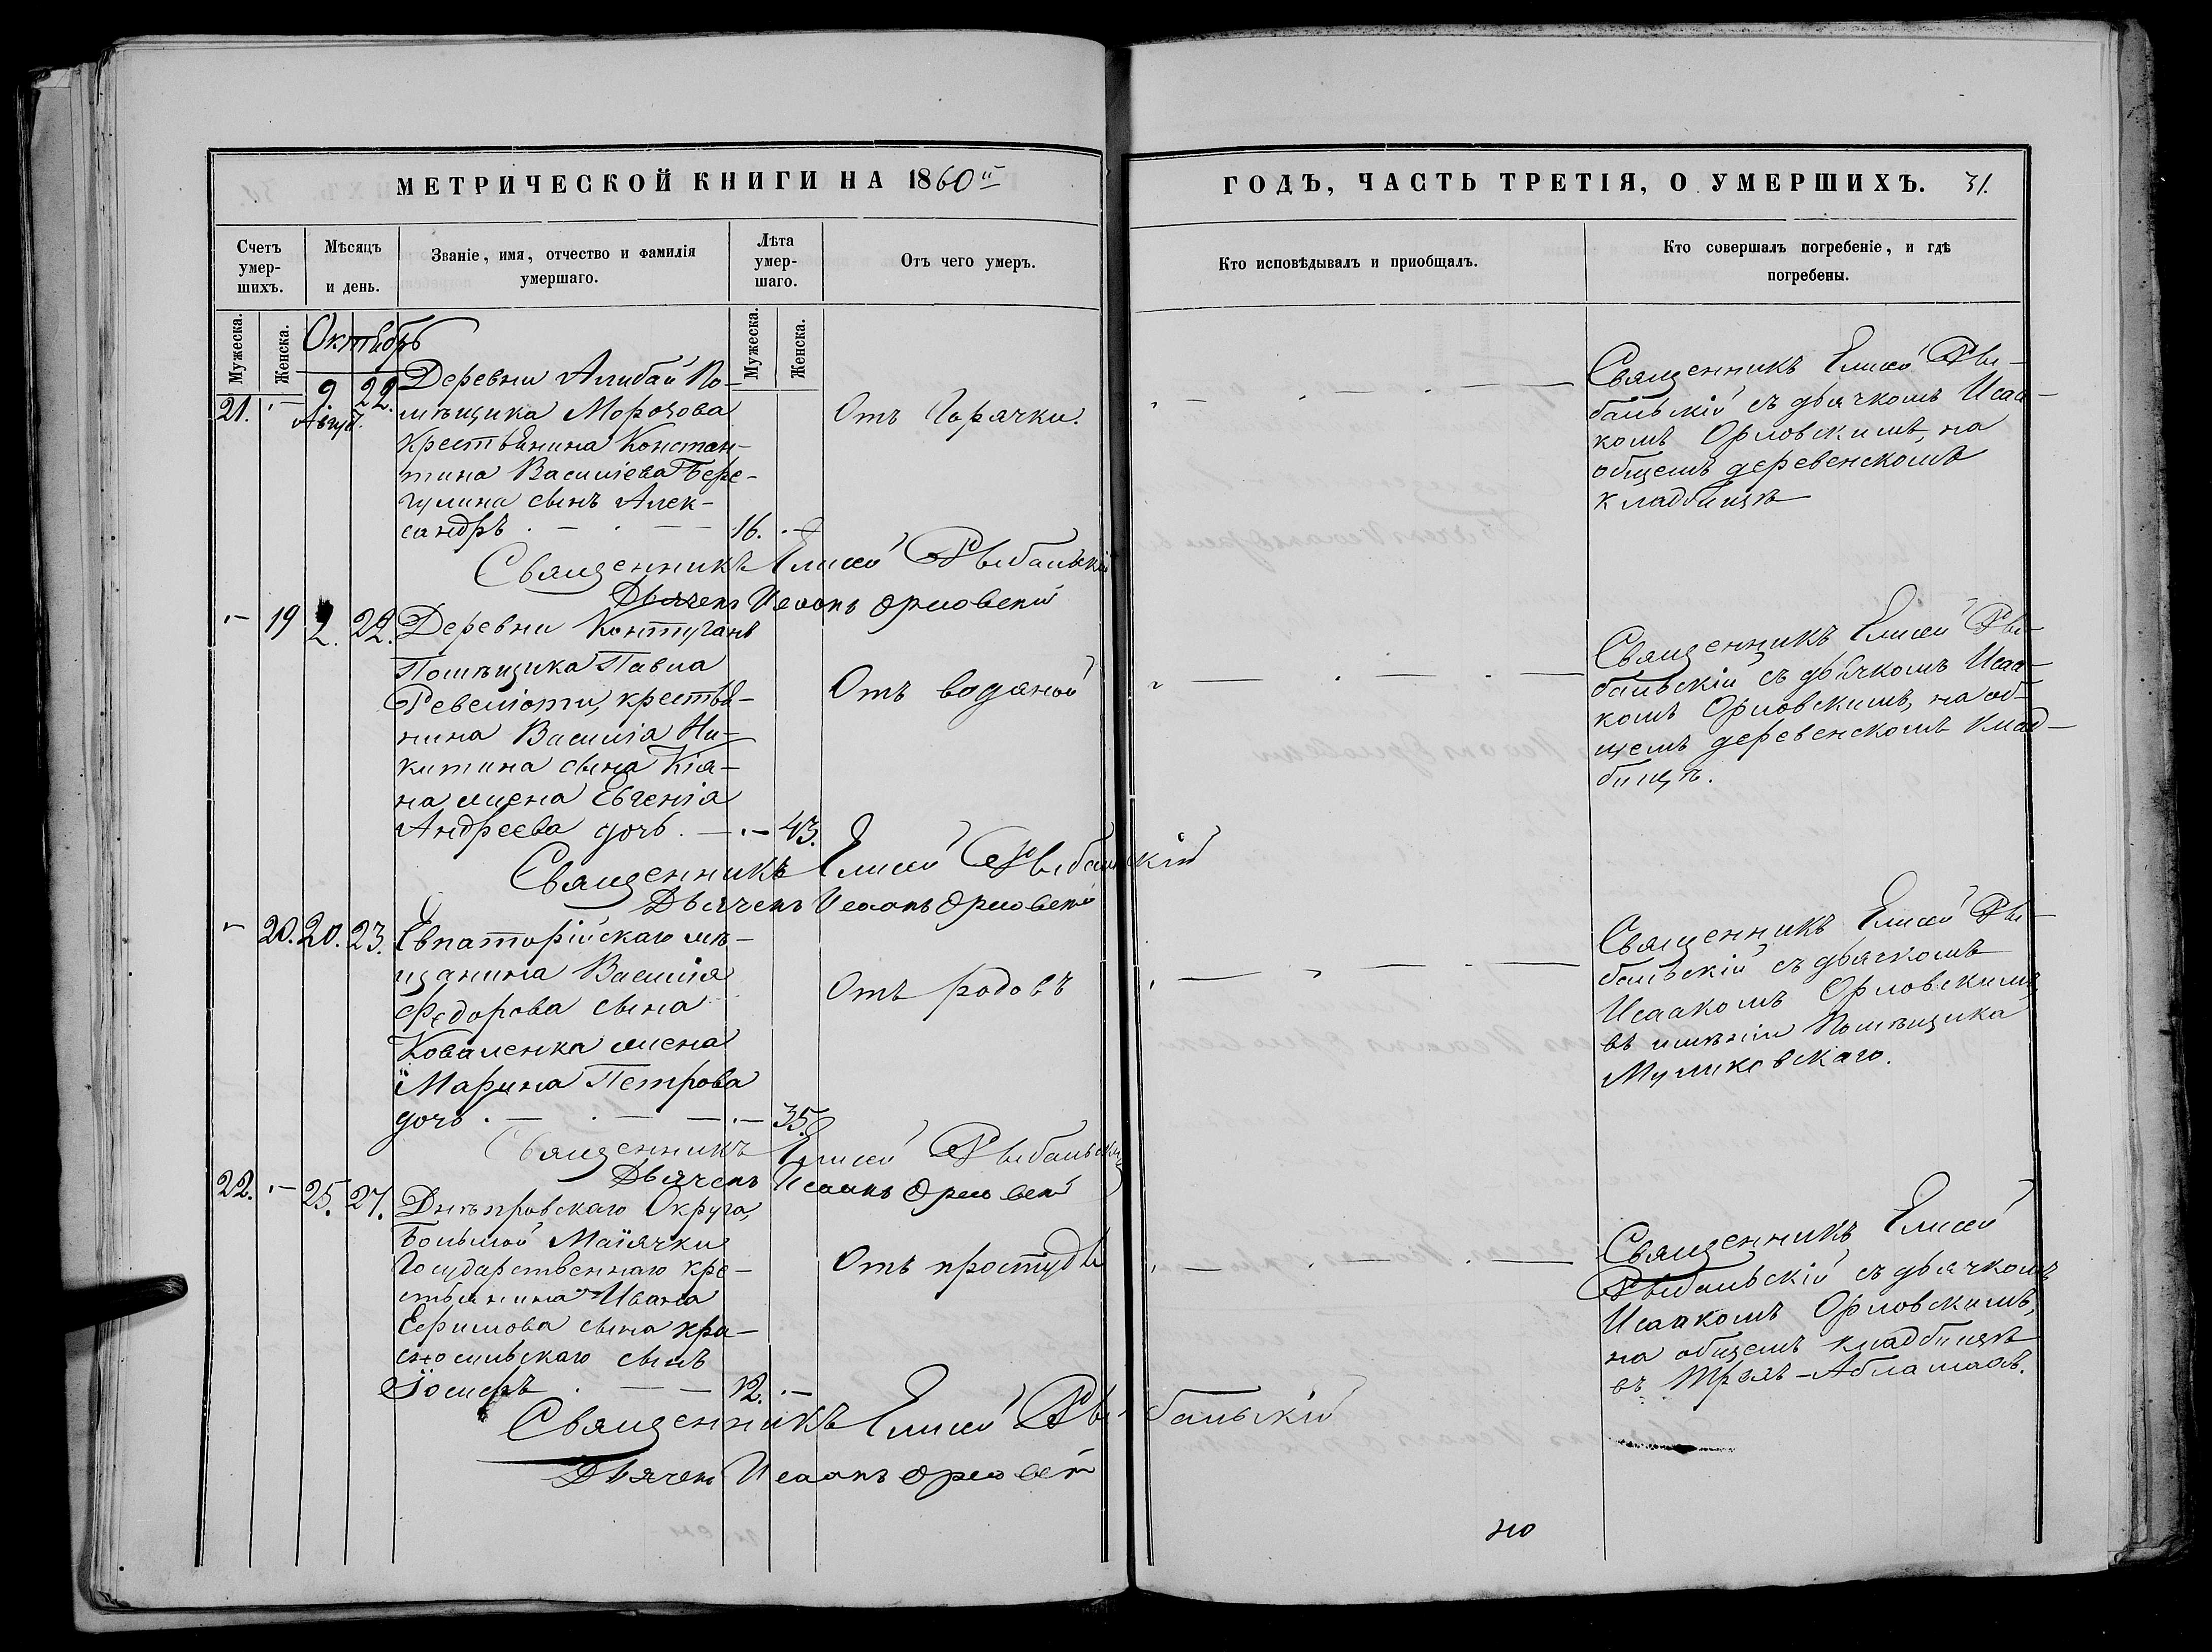 МЕТРИЧЕСКОЙ КНИГИ НА 1860й
ГОДЪ, ЧАСТЬ ТРЕТІЯ, О УМЕРШИХЪ. 31.
Счетъ умер-шихъ.
Мѣсяцъ и день.
Званіе, имя, отчество и фамилія умершаго.
Лѣта умер-шаго.
Отъ чего умеръ.
Кто исповѣдывалъ и приобщалъ.
Кто совершалъ погребеніе, и гдѣ погребены.
Мужеска.
Женска.
Мужеска.
Женска.
Октябрь
21. 9. 22. Деревни Алибай По-
Август.
мѣщика Морозова
Крестьянина Констан-
тина Василіева Бере-
гулина сынъ Алек-
сандръ 16.
Отъ Горячки.
Священникъ Елисей Ры-
бальскій съ дьячкомъ Исаа-
комъ Орловскимъ, на
общемъ деревенскомъ
кладбищѣ
Священникъ Елисей Рыбальскій
Дьячекъ Исаакъ Орловскій
19 2. 22. Деревни Контуганъ
Помѣщика Павла
Ревеліоти, крестья-
нина Василія Ни-
китина сына Кія-
на жена Евгенія
Андреева дочь. 43.
Отъ водяной
Священникъ Елисей Ры-
бальскій съ дьячкомъ Исаа-
комъ Орловскимъ, на об-
щемъ деревенскомъ клад-
бищѣ.
Священникъ Елисей Рыбальскій
Дьячекъ Исаакъ Орловскій
20. 20. 23. Евпаторійскаго мѣ-
щанина Василія
Федорова сына
Коваленка жена
Марина Петрова
дочь 35.
Отъ родовъ
Священникъ Елисей Ры-
бальскій съ дьячкомъ
Исаакомъ Орловскимъ,
въ имѣніи Помѣщика
Священникъ Елисей Рыбальскій
Дьячекъ Исаакъ Орловскій
22. 25. 27. Днѣпровскаго Округа,
Большой Маіячки
Государственнаго кре-
стьянина Ивана
Ефимова сына Кра-
сносельскаго сынъ
Іосифъ 12.
Отъ простуды
Священникъ Елисей
Рыбальскій съ дьячкомъ
Исаакомъ Орловскимъ,
на общемъ кладбищѣ
Священникъ Елисей Рыбальскій
Дьячекъ Исаакъ Орловскій